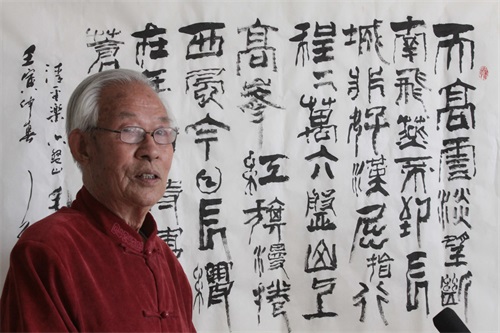 天高雲淡望斷
南飛雁不到長
城非好漢屈指行
程二萬六盤山上
高峰紅旗漫捲
西風今日長纓
在 時
蒼
清平樂六盤山
壬寅仲春